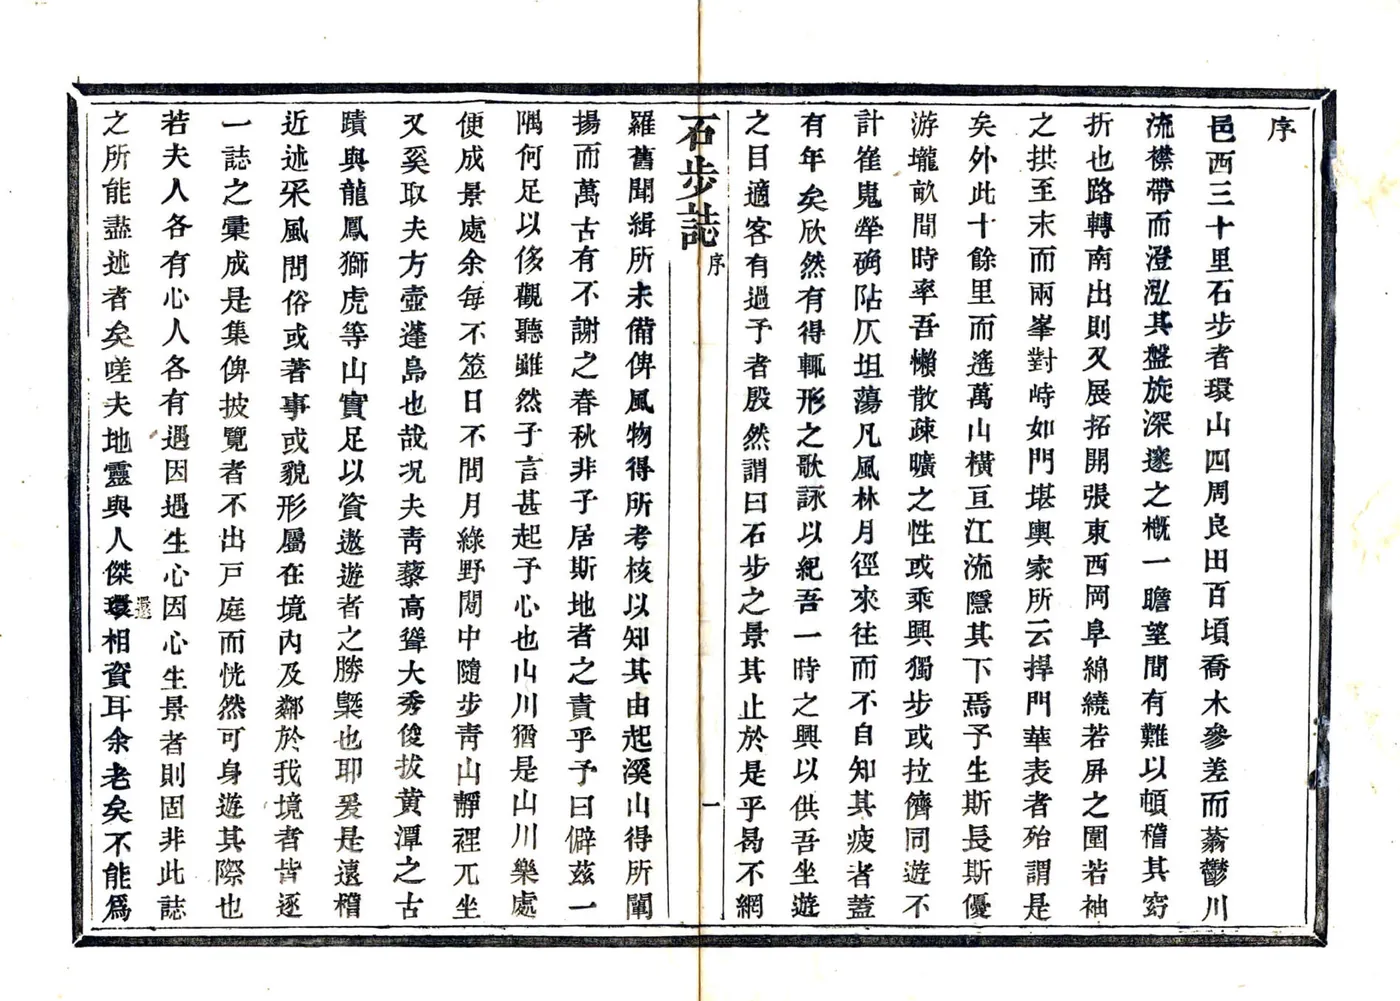 序
邑西三十里石步者環山四周良田百頃喬木參差而蓊鬱川
流襟帶而澄泓其盤旋深邃之概一瞻望間有難以頓稽其窈
折也路轉南出則又展拓開張東西岡阜綿繞若屏之圍若袖
之拱至末而兩峯對峙如門堪輿家所云捍門華表者殆謂是
矣外此十餘里而遙萬山橫亘江流隱其下焉予生斯長斯優
游壠畝間時率吾懶散疎曠之性或乘興獨步或拉儕同遊不
計崔嵬犖确阽仄坦蕩凡風林月徑來往而不自知其疲者蓋
有年矣欣然有得輒形之歌詠以紀吾一時之興以供吾坐遊
之目適客有過予者殷然謂曰石步之景其止於是乎曷不網
石步誌
序
一
羅舊聞緝所未備俾風物得所考核以知其由起溪山得所闡
揚而萬古有不謝之春秋非子居斯地者之責乎予曰僻茲一
隅何足以侈觀聽雖然子言甚起予心也山川猶是山川樂處
便成景處余每不筮日不問月綠野閒中隨步青山靜裡兀坐
又奚取夫方壺蓬島也哉况夫青藜高聳大秀俊拔黄潭之古
蹟與龍鳳獅虎等山實足以資遨遊者之勝槩也耶爰是遠稽
近述采風問俗或著事或貌形屬在境內及鄰於我境者皆逐
一誌之彙成是集俾披覽者不出戸庭而恍然可身遊其際也
若夫人各有心人各有遇因遇生心因心生景者則固非此誌
之所能盡述者矣嗟夫地靈與人傑環相資耳余老矣不能爲
還